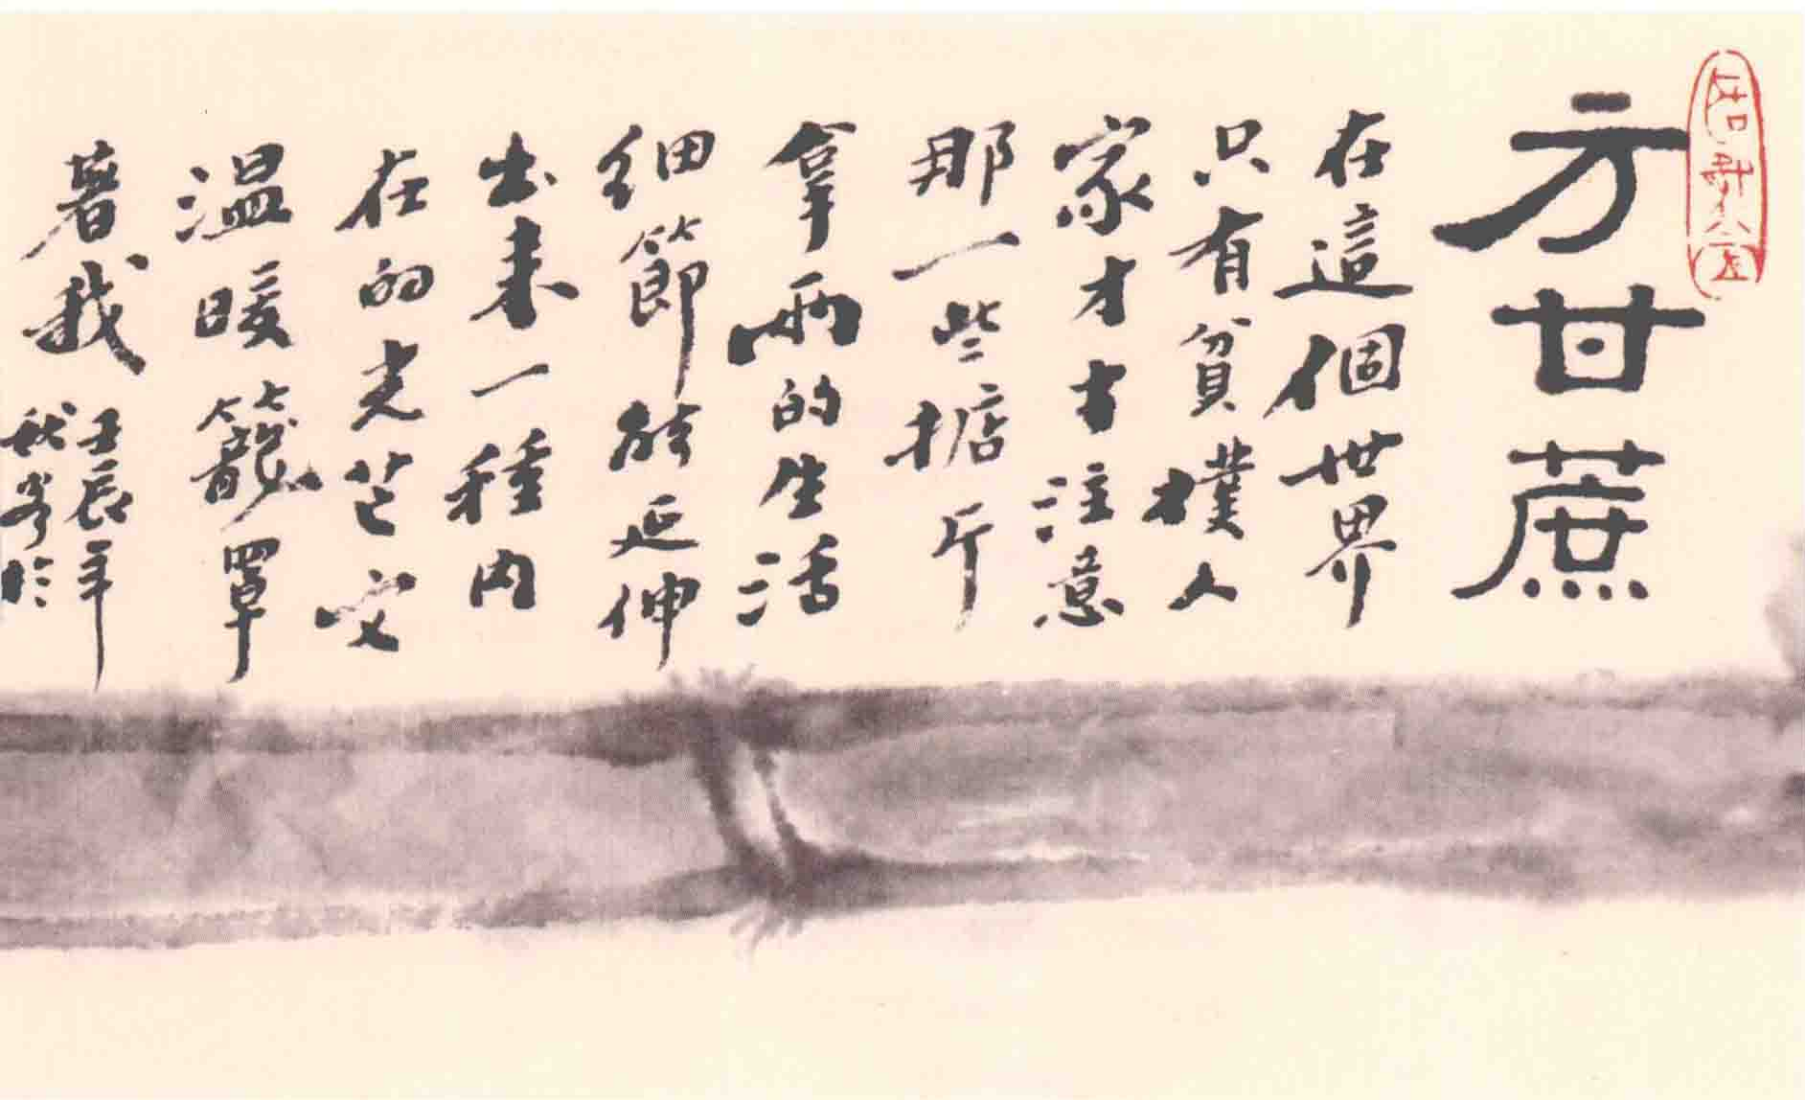 方甘蔗
在這個世界
只有貧樸人
家才注意
那一些掂斤
拿兩的生活
细節能延伸
出来一種内
在的光芒
溫暖籠罩
著我
壬辰年
秋於